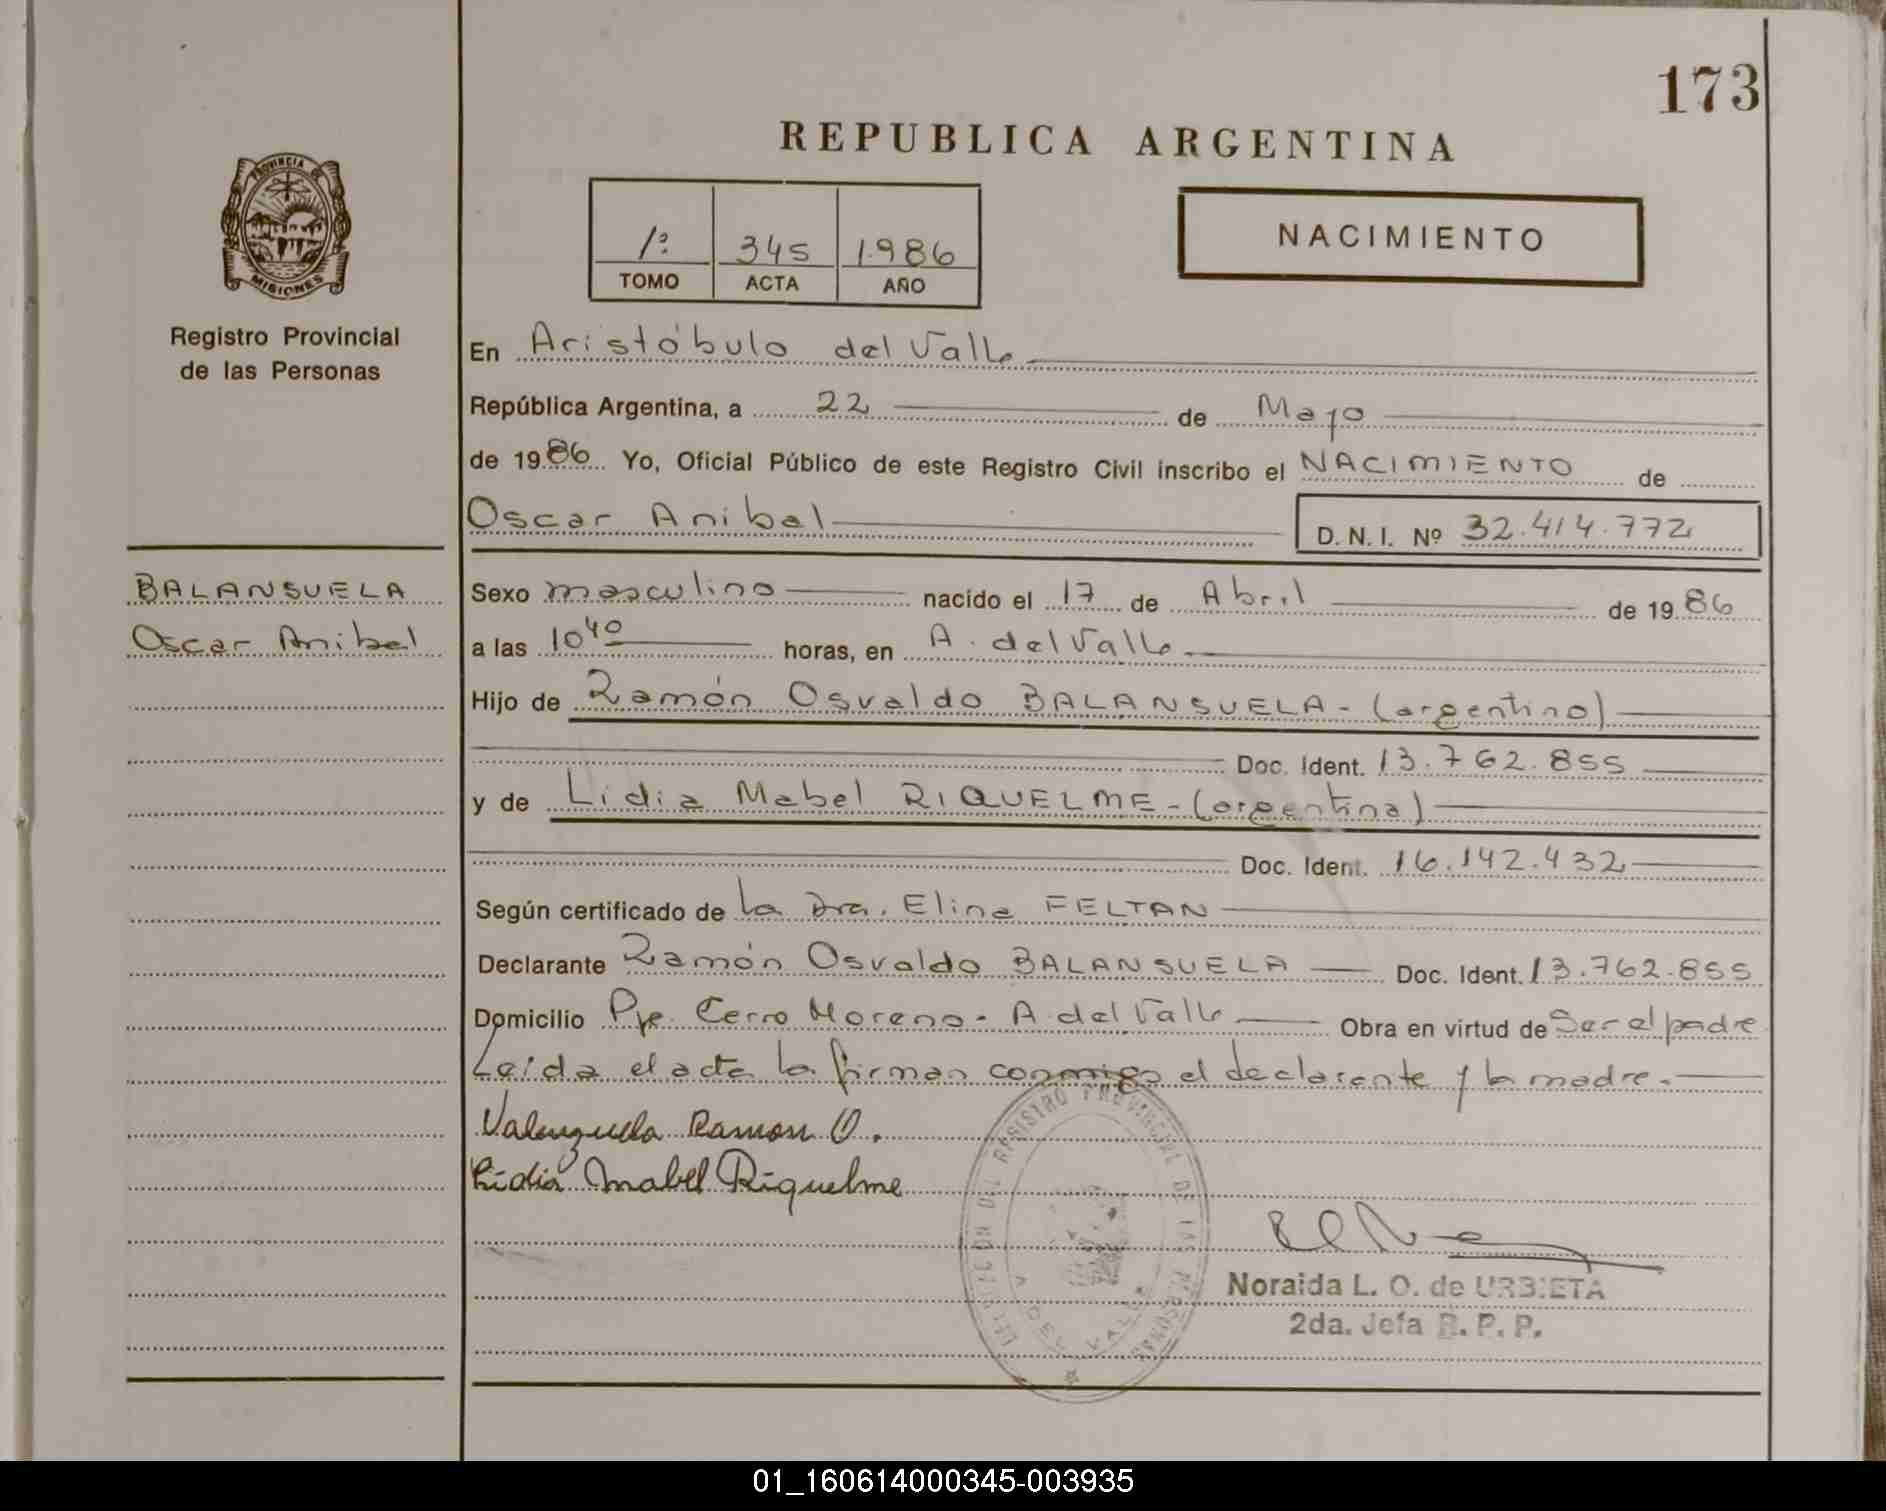 173
REPUBLICA ARGENTINA
PROVINCIA DE
MISIONES
Registro Provincial
de las Personas
1º 345 1.986
TOMO ACTA AÑO
NACIMIENTO
En Aristóbulo del Valle
República Argentina, a 22 de Mayo
de 1986 Yo, Oficial Público de este Registro Civil inscribo el NACIMIENTO de
Oscar Anibal D. N. I. Nº 32.414.772
BALANSUELA
Oscar Anibal
Sexo masculino nacido el 17 de Abril de 1986
a las 10 40 horas, en A. del Valle
Hijo de Ramón Osvaldo BALANSUELA - (argentino)
Doc. Ident. 13.762.855
y de Lidia Mabel RIQUELME - (argentina)
Doc. Ident. 16.142.432
Según certificado de la Dra. Elina FELTAN
Declarante Ramón Osvaldo BALANSUELA Doc. Ident. 13.762.855
Domicilio Pje. Cerro Moreno - A. del Valle Obra en virtud de Ser el padre
Leida el acta la firman conmigo el declarante y la madre.
Valenzuela Ramon O.
Lidia Mabel Riquelme
REGISTRO PROVINCIAL DE LAS PERSONAS
A. DEL VALLE
Noraida L. O. de URBIETA
2da. Jefa R. P. P.
01_160614000345-003935